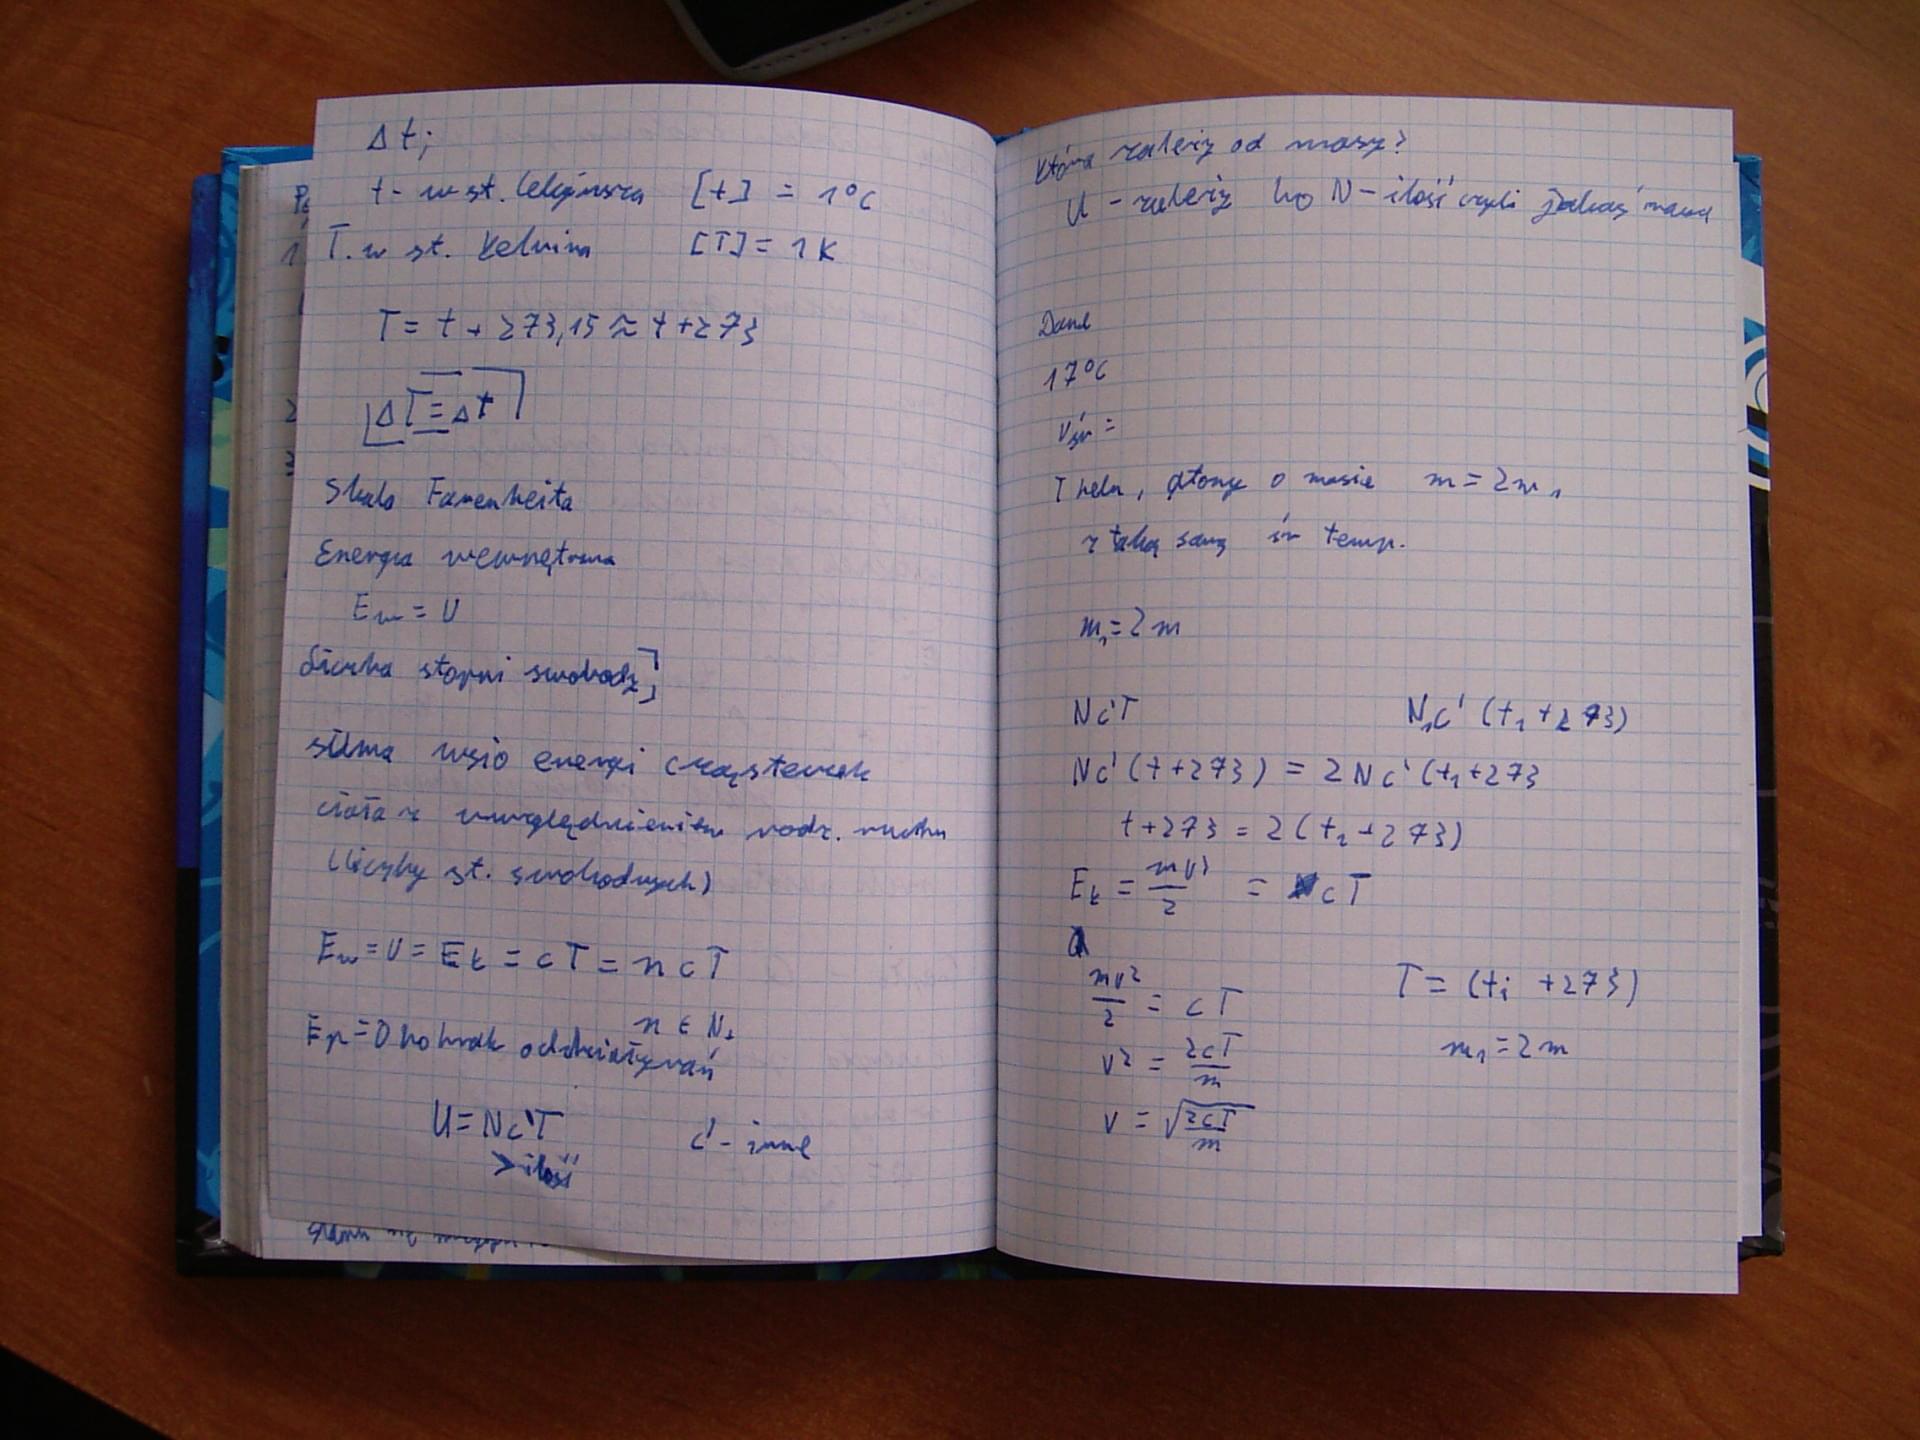 Δt;
t - w st. Celsjusza [t] = 1°C
T. w st. Kelvina [T] = 1K
T = t + 273,15 ≈ t + 273
ΔT = Δt
Skala Farenheita
Energia wewnętrzna
Ew = U
Liczba stopni swobody
suma wsio energi cząsteczek
ciała z uwzględnieniem rodz. ruchu
(liczby st. swobodnych)
Ew = U = Ek = cT = ncT
n ∈ N+
Ep = 0 bo brak oddziaływań
U = Nc'T c' - inne
> ilość
Która zależy od masy?
U - zależy bo N - ilość czyli jakaś masa
Dane
17°C
vśr =
T helu, o masie m = 2m1
z taką samą śr temp.
m1 = 2m
Nc'T N1c' (t1 + 273)
Nc' (t + 273) = 2Nc' (t1 + 273
t + 273 = 2(t2 + 273)
Ek = mv²/2 = cT
mv²/2 = cT T = (ti + 273)
v² = 2cT/m m1 = 2m
v = √(2cT/m)